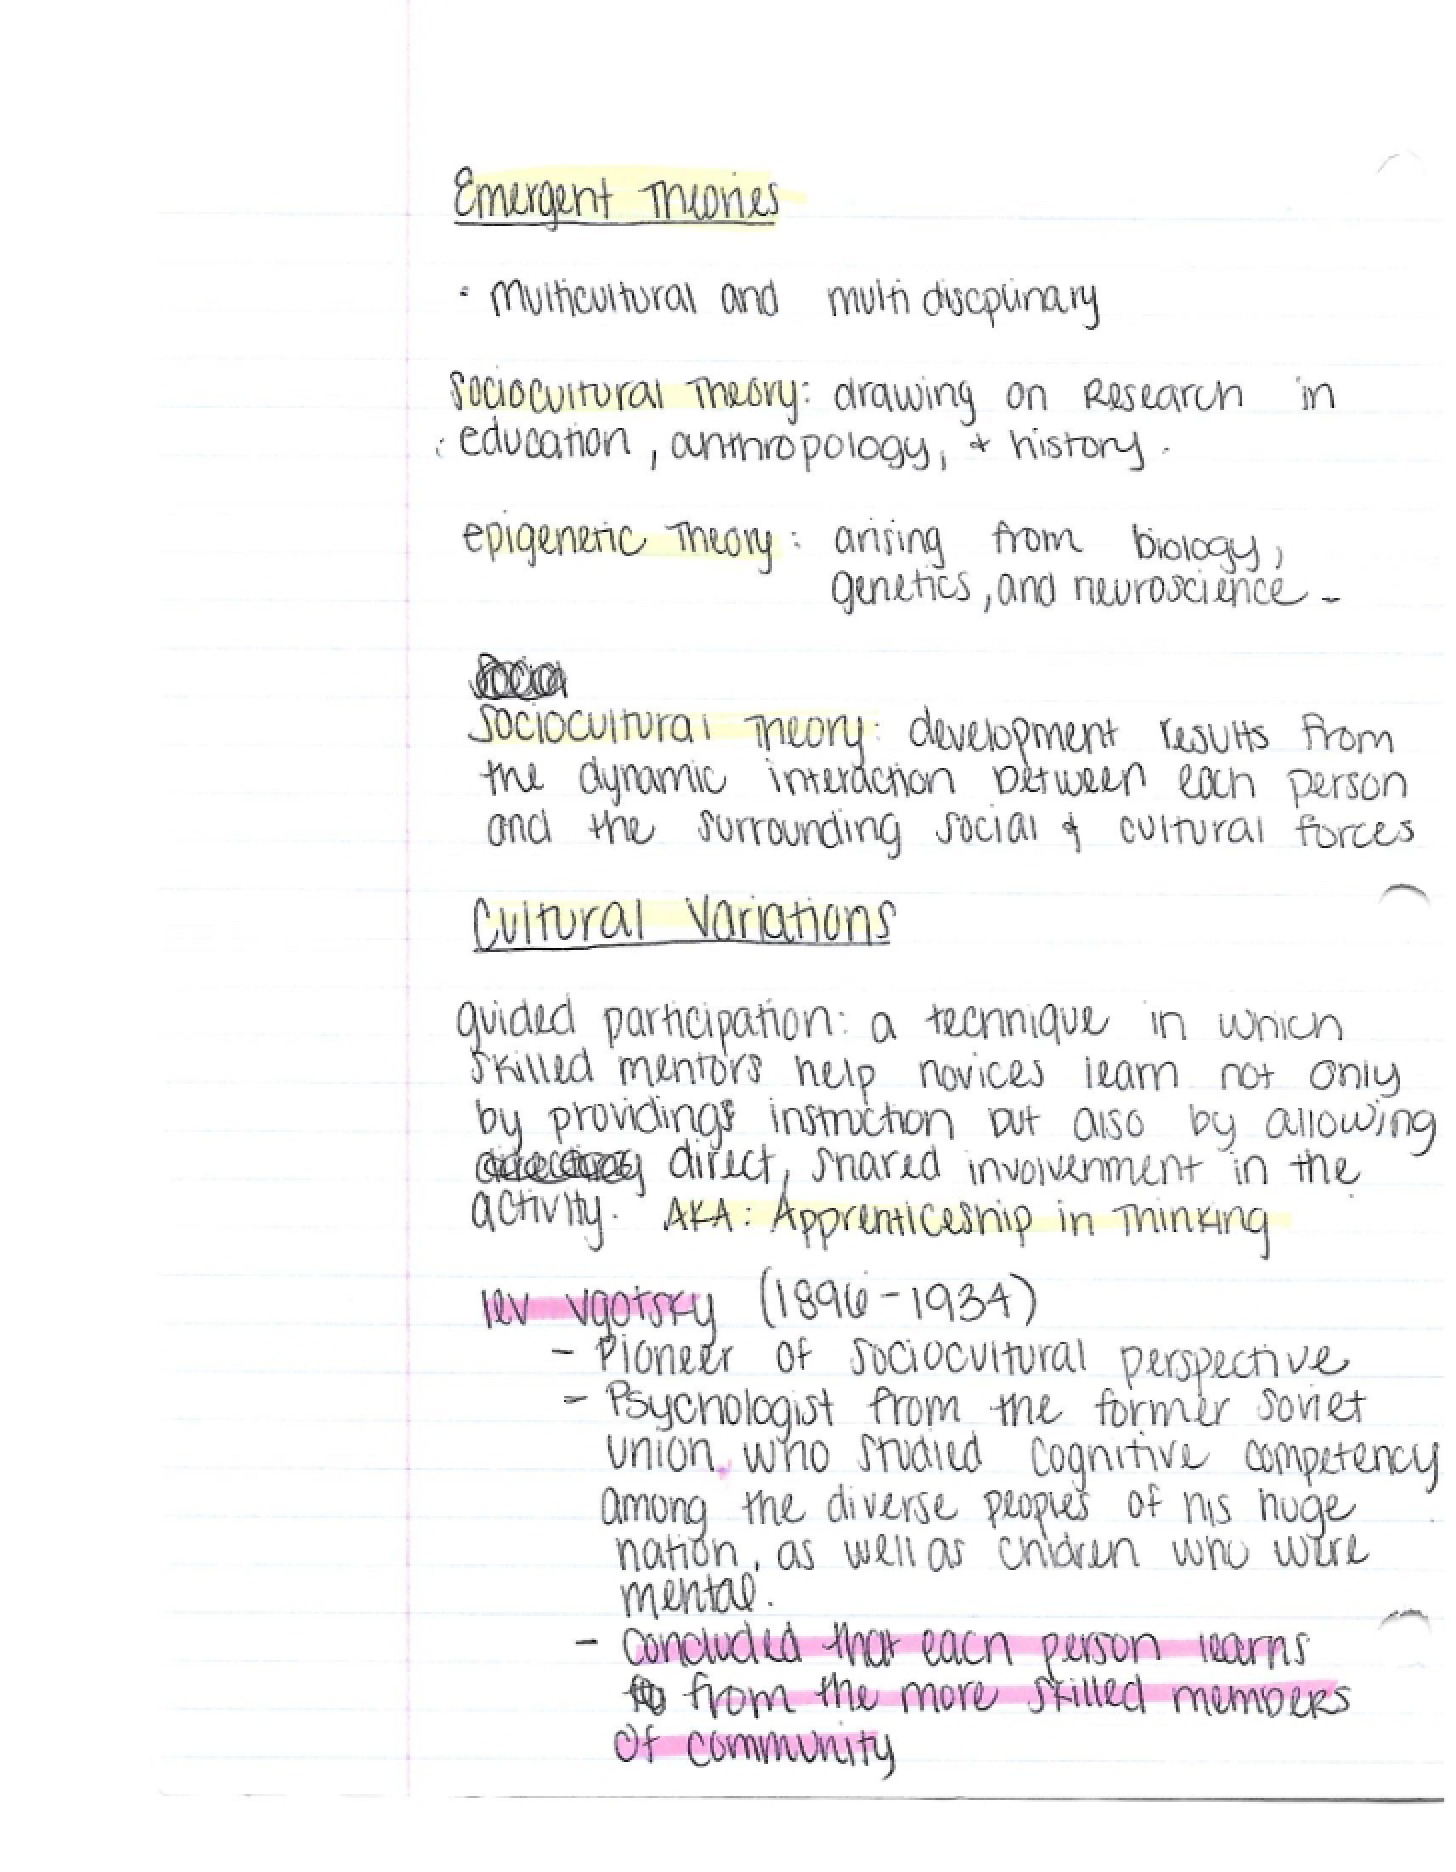 Emergent Theories
· Multicultural and multi discplinary
Sociocultural Theory: drawing on Research in
education, anthropology, + history.
epigenetic Theory: arising from biology,
genetics, and neuroscience -
Sociocultural Theory: development results from
the dynamic interaction between each person
and the surrounding social & cultural forces
Cultural Variations
guided participation: a technique in which
skilled mentors help novices learn not only
by providings instruction but also by allowing
direct, shared involvenment in the
activity. AKA: Apprenticeship in Thinking
lev vgotsky (1896-1934)
- Pioneer of sociocultural perspective
- Psychologist from the former soviet
union who studied cognitive competency
among the diverse peoples of his huge
nation, as well as children who were
mental.
- Concluded that each person learns
from the more skilled members
of community